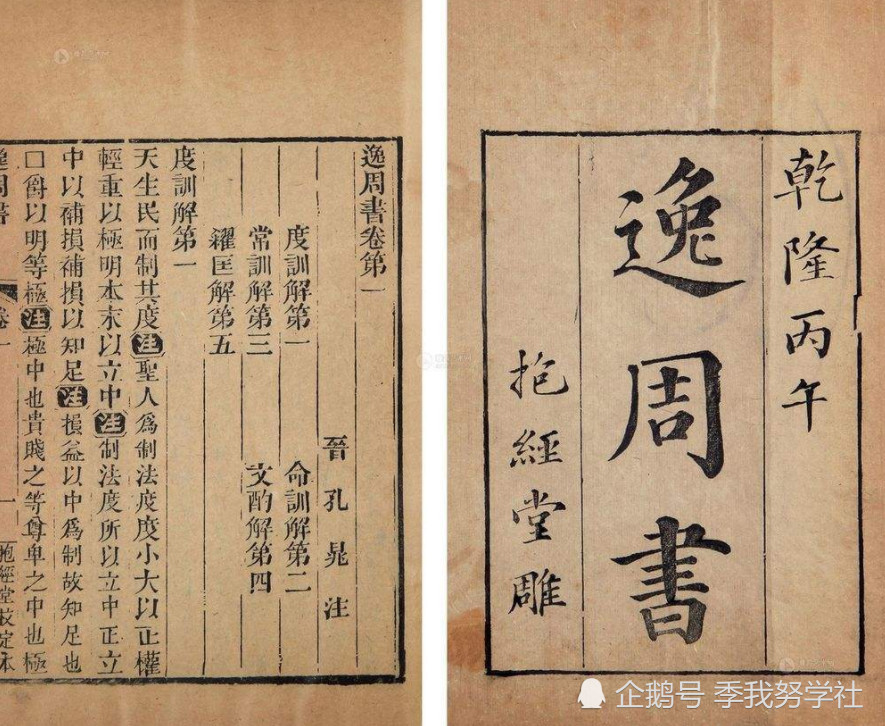 乾隆丙午
逸周書
抱經堂雕
逸周書卷第一
晉孔晁注
度訓解第一 命訓解第二
常訓解第三 文酌解第四
糴匡解第五
度訓解第一
天生民而制其度注聖人爲制法度度小大以正權
輕重以極明本末以立中注制法度所以立中正立
中以補損補損以知足注損益以中爲制故知足也
口爵以明等極注極中也貴賤之等尊卑之中也極
逸周書 卷一 一 抱經堂校定本
企鹅号 季我努学社